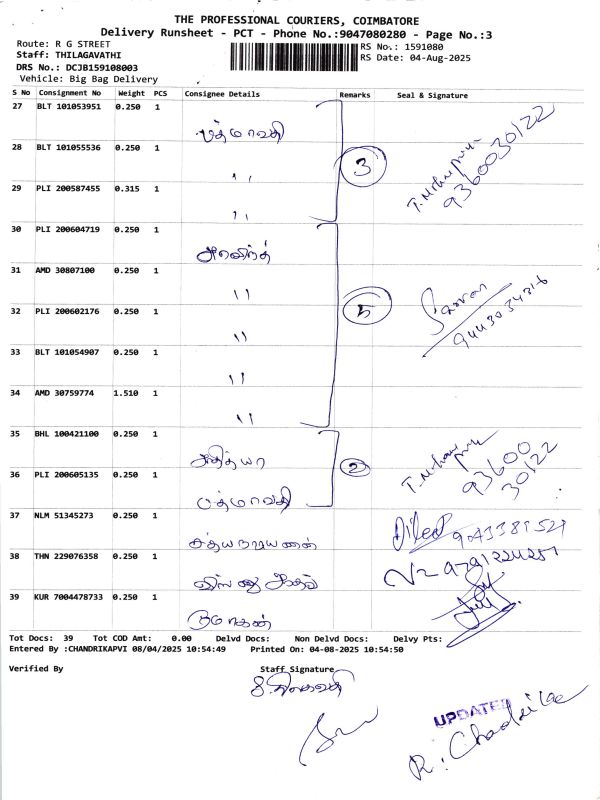 THE PROFESSIONAL COURIERS, COIMBATORE
Delivery Runsheet - PCT - Phone No.:9047080280 - Page No.:3
Route: R G STREET
RS No.: 1591080
Staff: THILAGAVATHI
RS Date: 04-Aug-2025
DRS No.: DCJB159108003
Vehicle: Big Bag Delivery
S No Consignment No Weight PCS Consignee Details Remarks Seal & Signature
27 BLT 101053951 0.250 1 பத்மாவதி
28 BLT 101055536 0.250 1 ''
3
9360030122
29 PLI 200587455 0.315 1 ''
30 PLI 200604719 0.250 1 அரவிந்த்
31 AMD 30807100 0.250 1 ''
5
32 PLI 200602176 0.250 1 ''
33 BLT 101054907 0.250 1 ''
34 AMD 30759774 1.510 1 ''
35 BHL 100421100 0.250 1 அதித்யா
2
93600
30122
36 PLI 200605135 0.250 1 பத்மாவதி
37 NLM 51345273 0.250 1 சத்யநாராயணன்
38 THN 229076358 0.250 1
39 KUR 7004478733 0.250 1
Tot Docs: 39 Tot COD Amt: 0.00 Delvd Docs: Non Delvd Docs: Delvy Pts:
Entered By :CHANDRIKAPVI 08/04/2025 10:54:49 Printed On: 04-08-2025 10:54:50
Verified By
Staff Signature
UPDATED